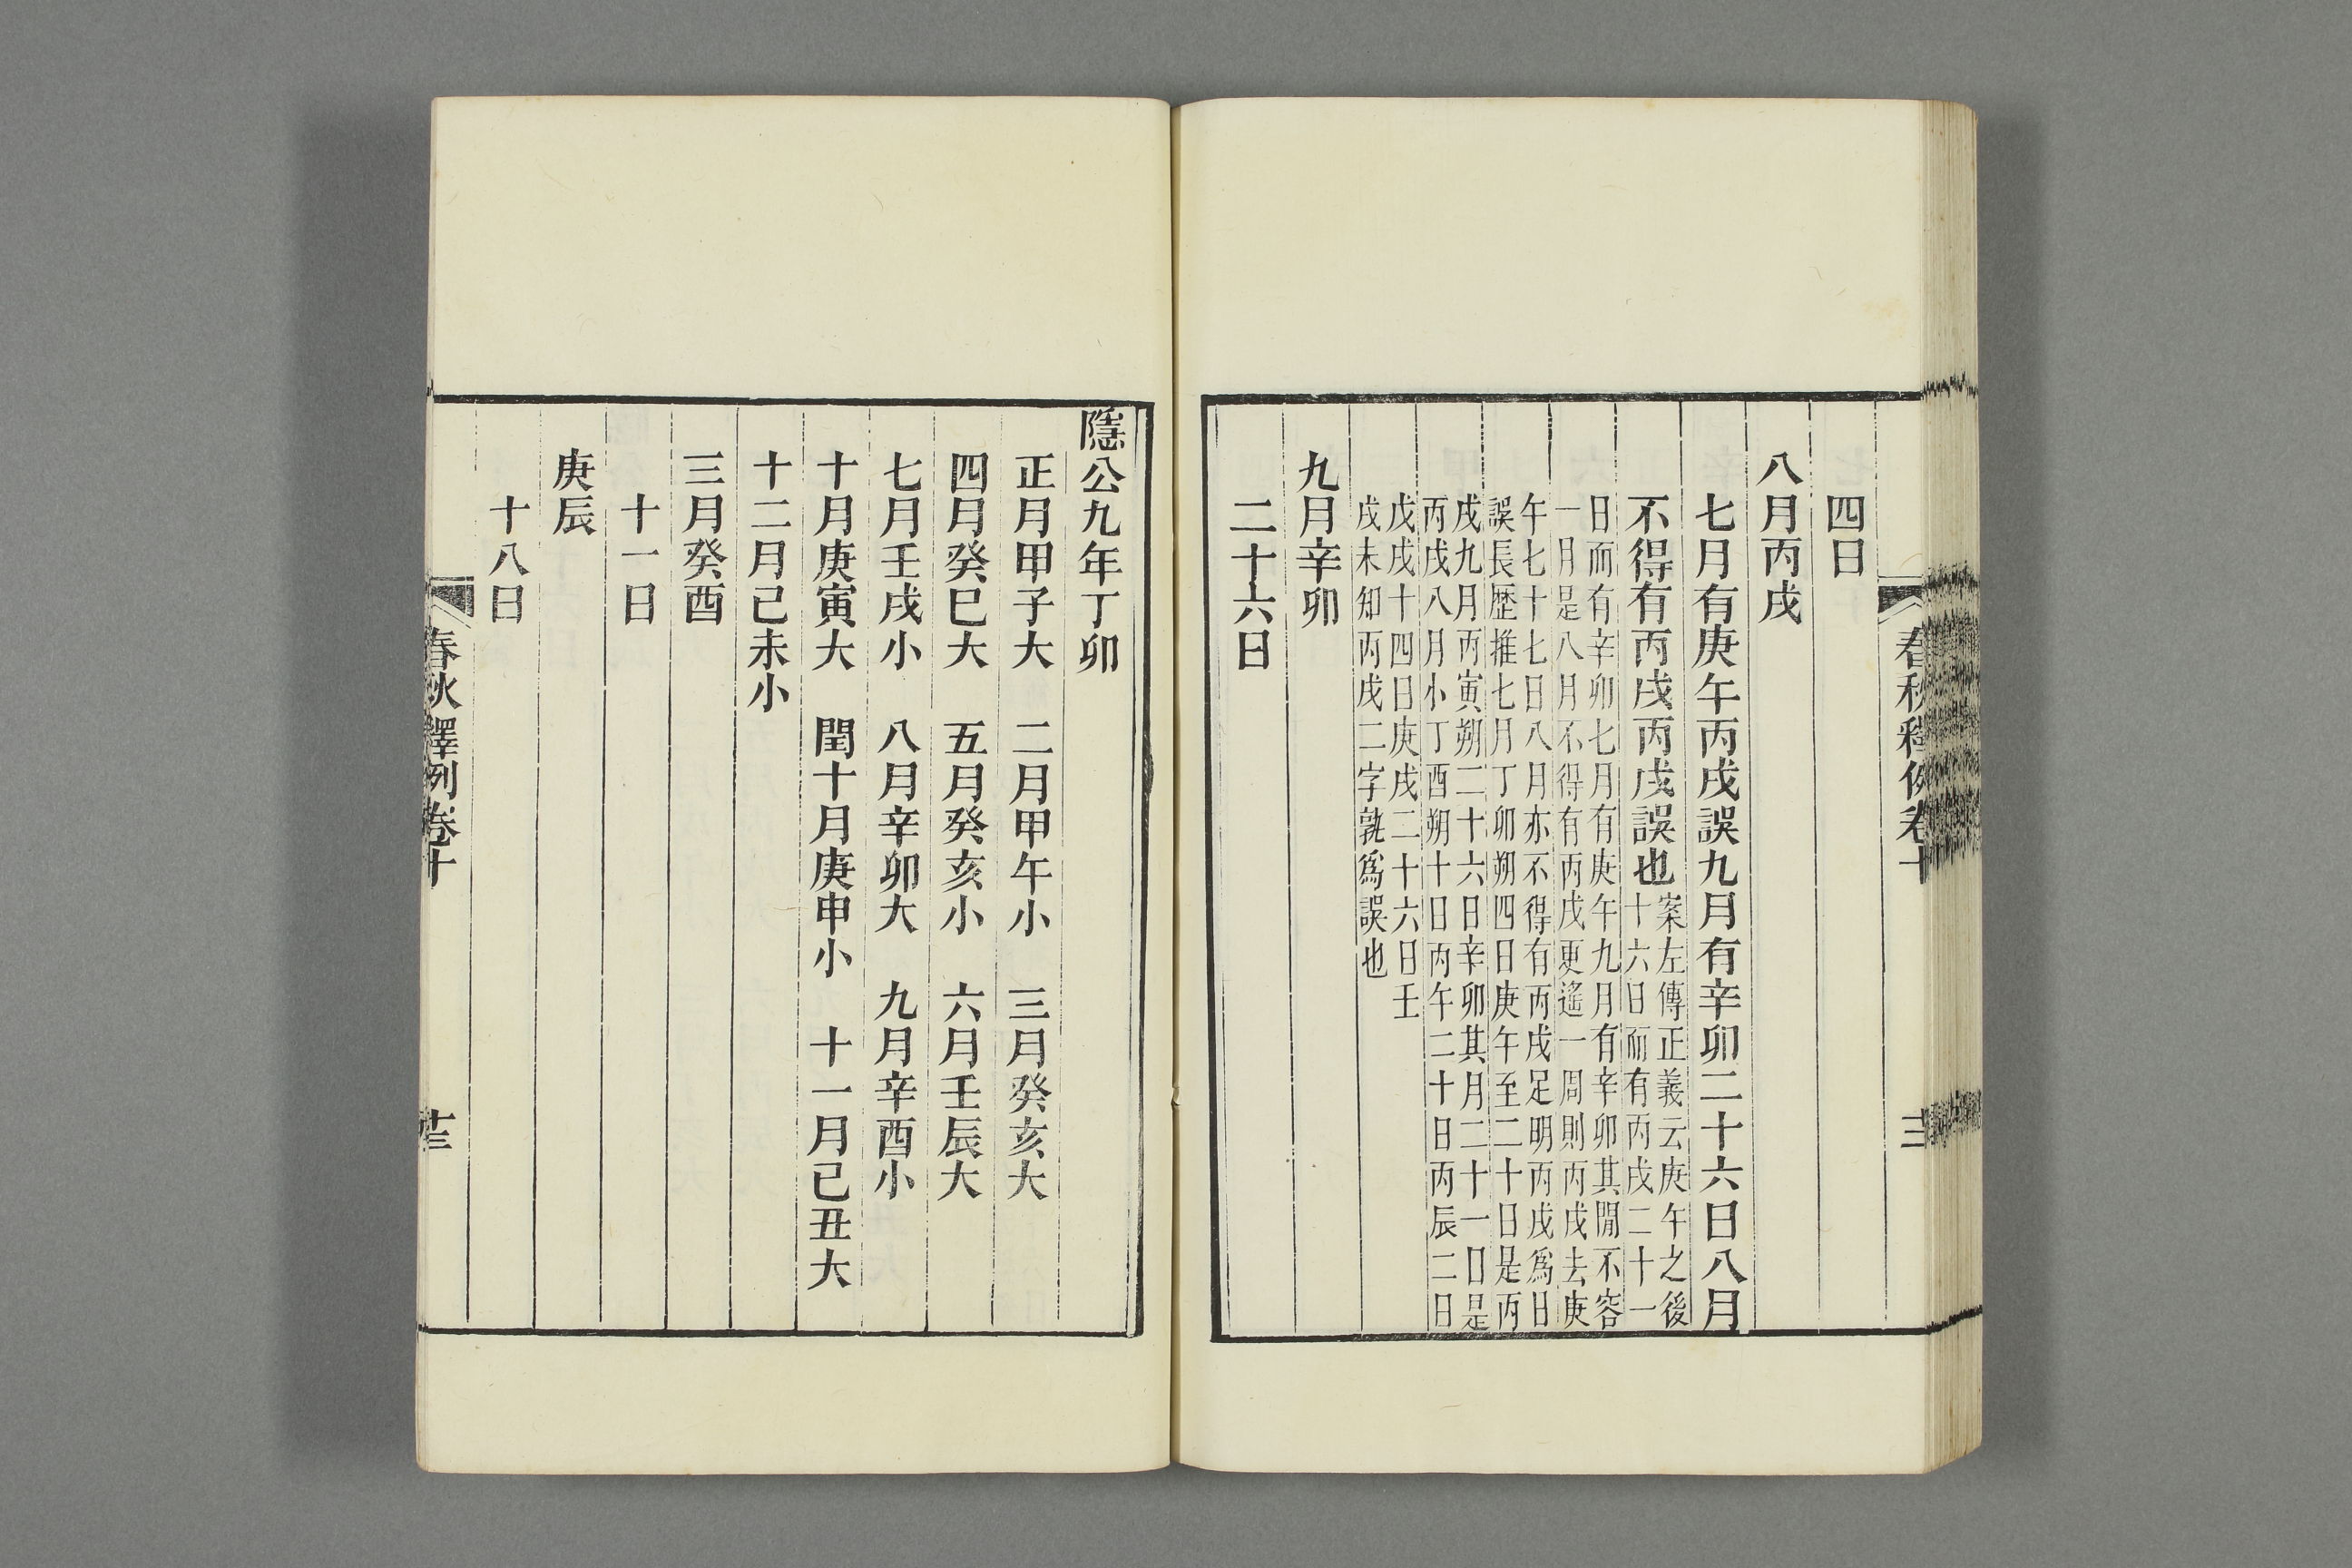 春秋釋例卷十
四日
八月丙戌
七月有庚午丙戌誤九月有辛卯二十六日八月
不得有丙戌丙戌誤也案左傳正義云庚午之後
十六日而有丙戌二十一
日而有辛卯七月有庚午九月有辛卯其閒不容
一月是八月不得有丙戌更遙一周則丙戌去庚
午七十七日八月亦不得有丙戌足明丙戌爲日
誤長歷推七月丁卯朔四日庚午至二十日是丙
戌九月丙寅朔二十六日辛卯其月二十一日是
丙戌八月小丁酉朔十日丙午二十日丙辰二日
戊戌十四日庚戌二十六日壬
戌未知丙戌二字孰爲誤也
九月辛卯
二十六日
隱公九年丁卯
正月甲子大　二月甲午小　三月癸亥大
四月癸巳大　五月癸亥小　六月壬辰大
七月壬戌小　八月辛卯大　九月辛酉小
十月庚寅大　閏十月庚申小　十一月己丑大
十二月己未小
三月癸酉
十一日
庚辰
十八日
春秋釋例卷十
十三